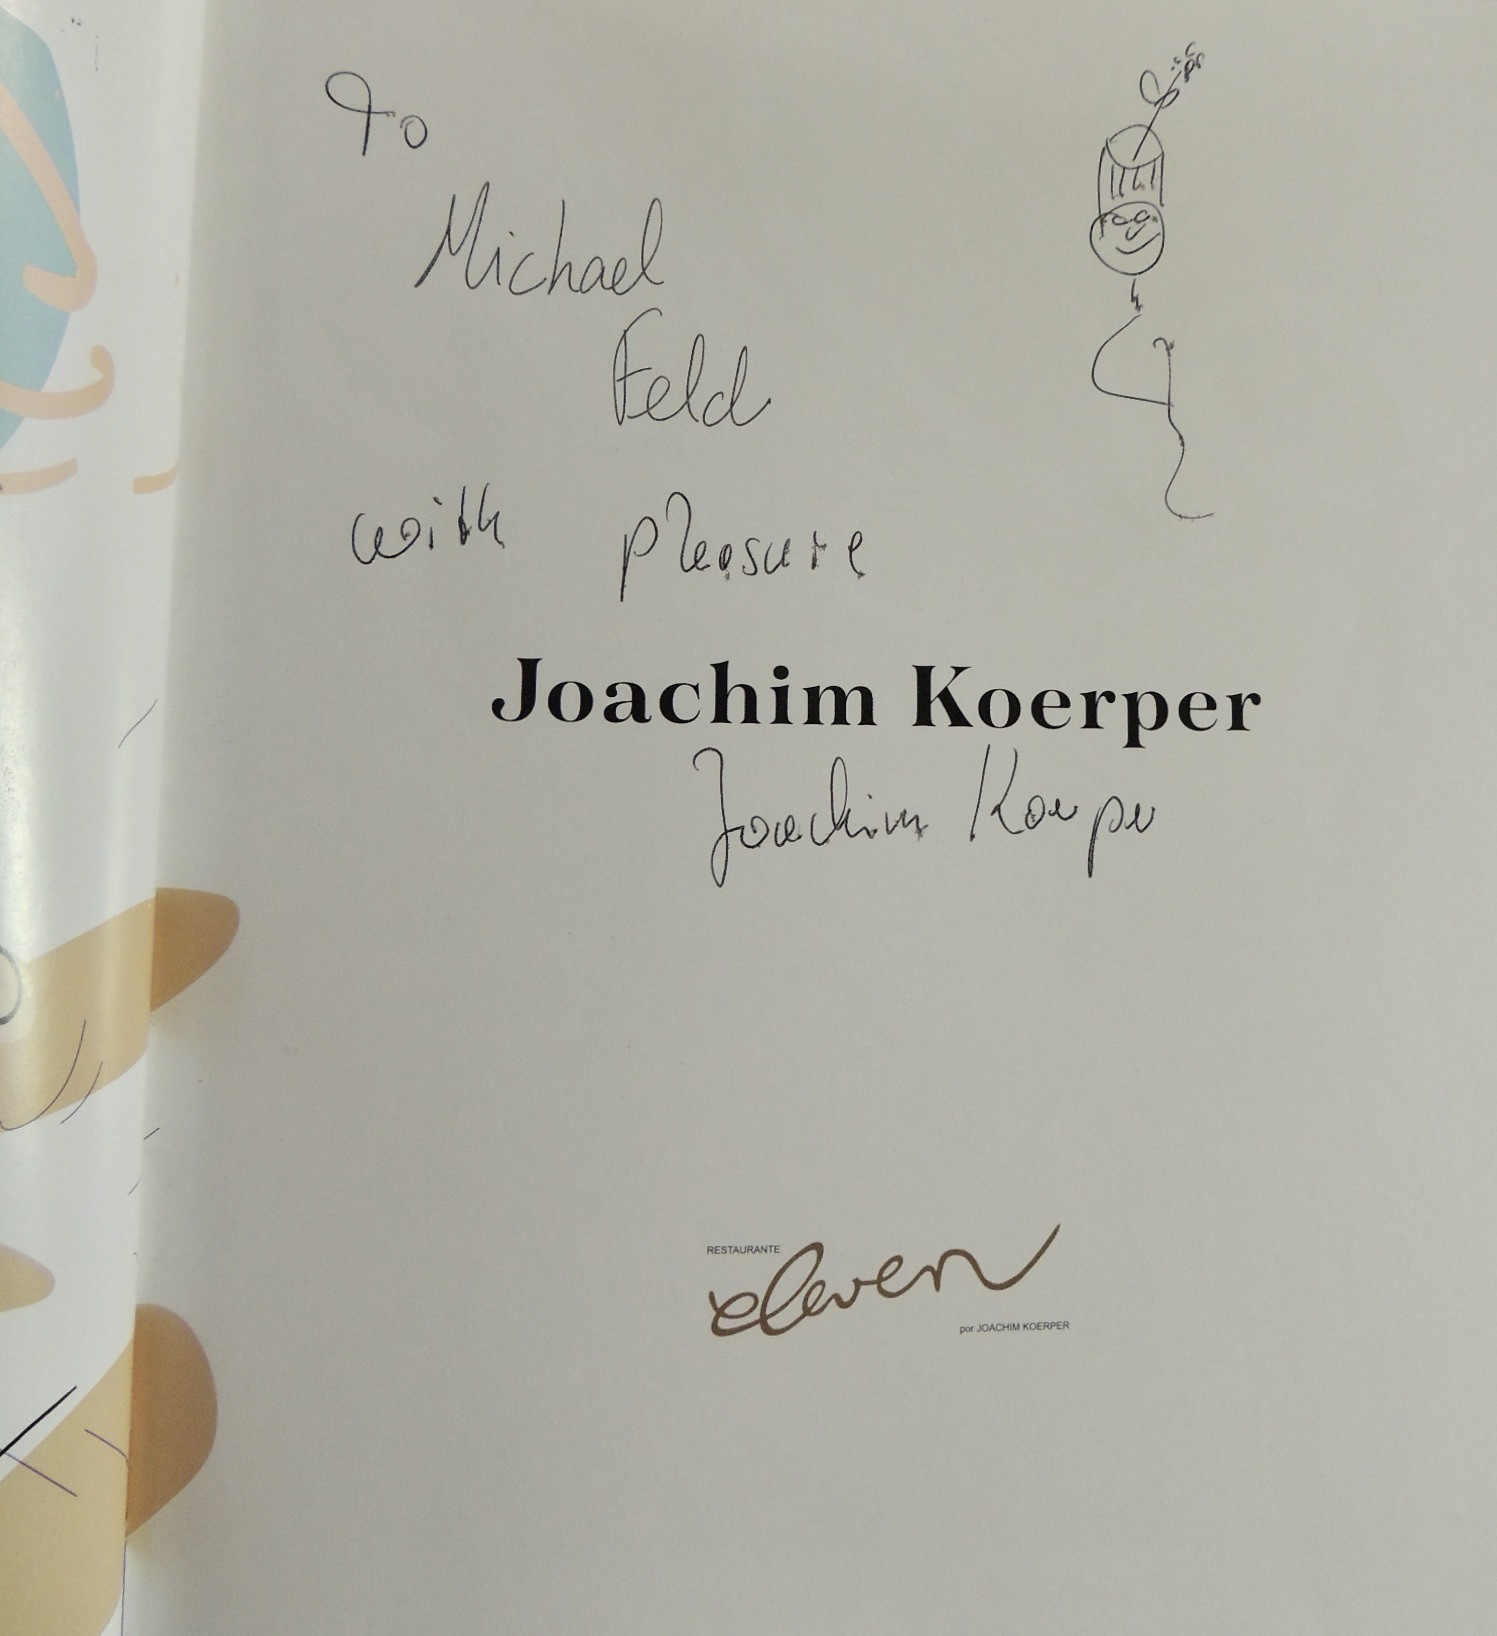 To
Michael
Feld
with pleasure
Joachim Koerper
Joachim Koerper
RESTAURANTE
eleven
por JOACHIM KOERPER